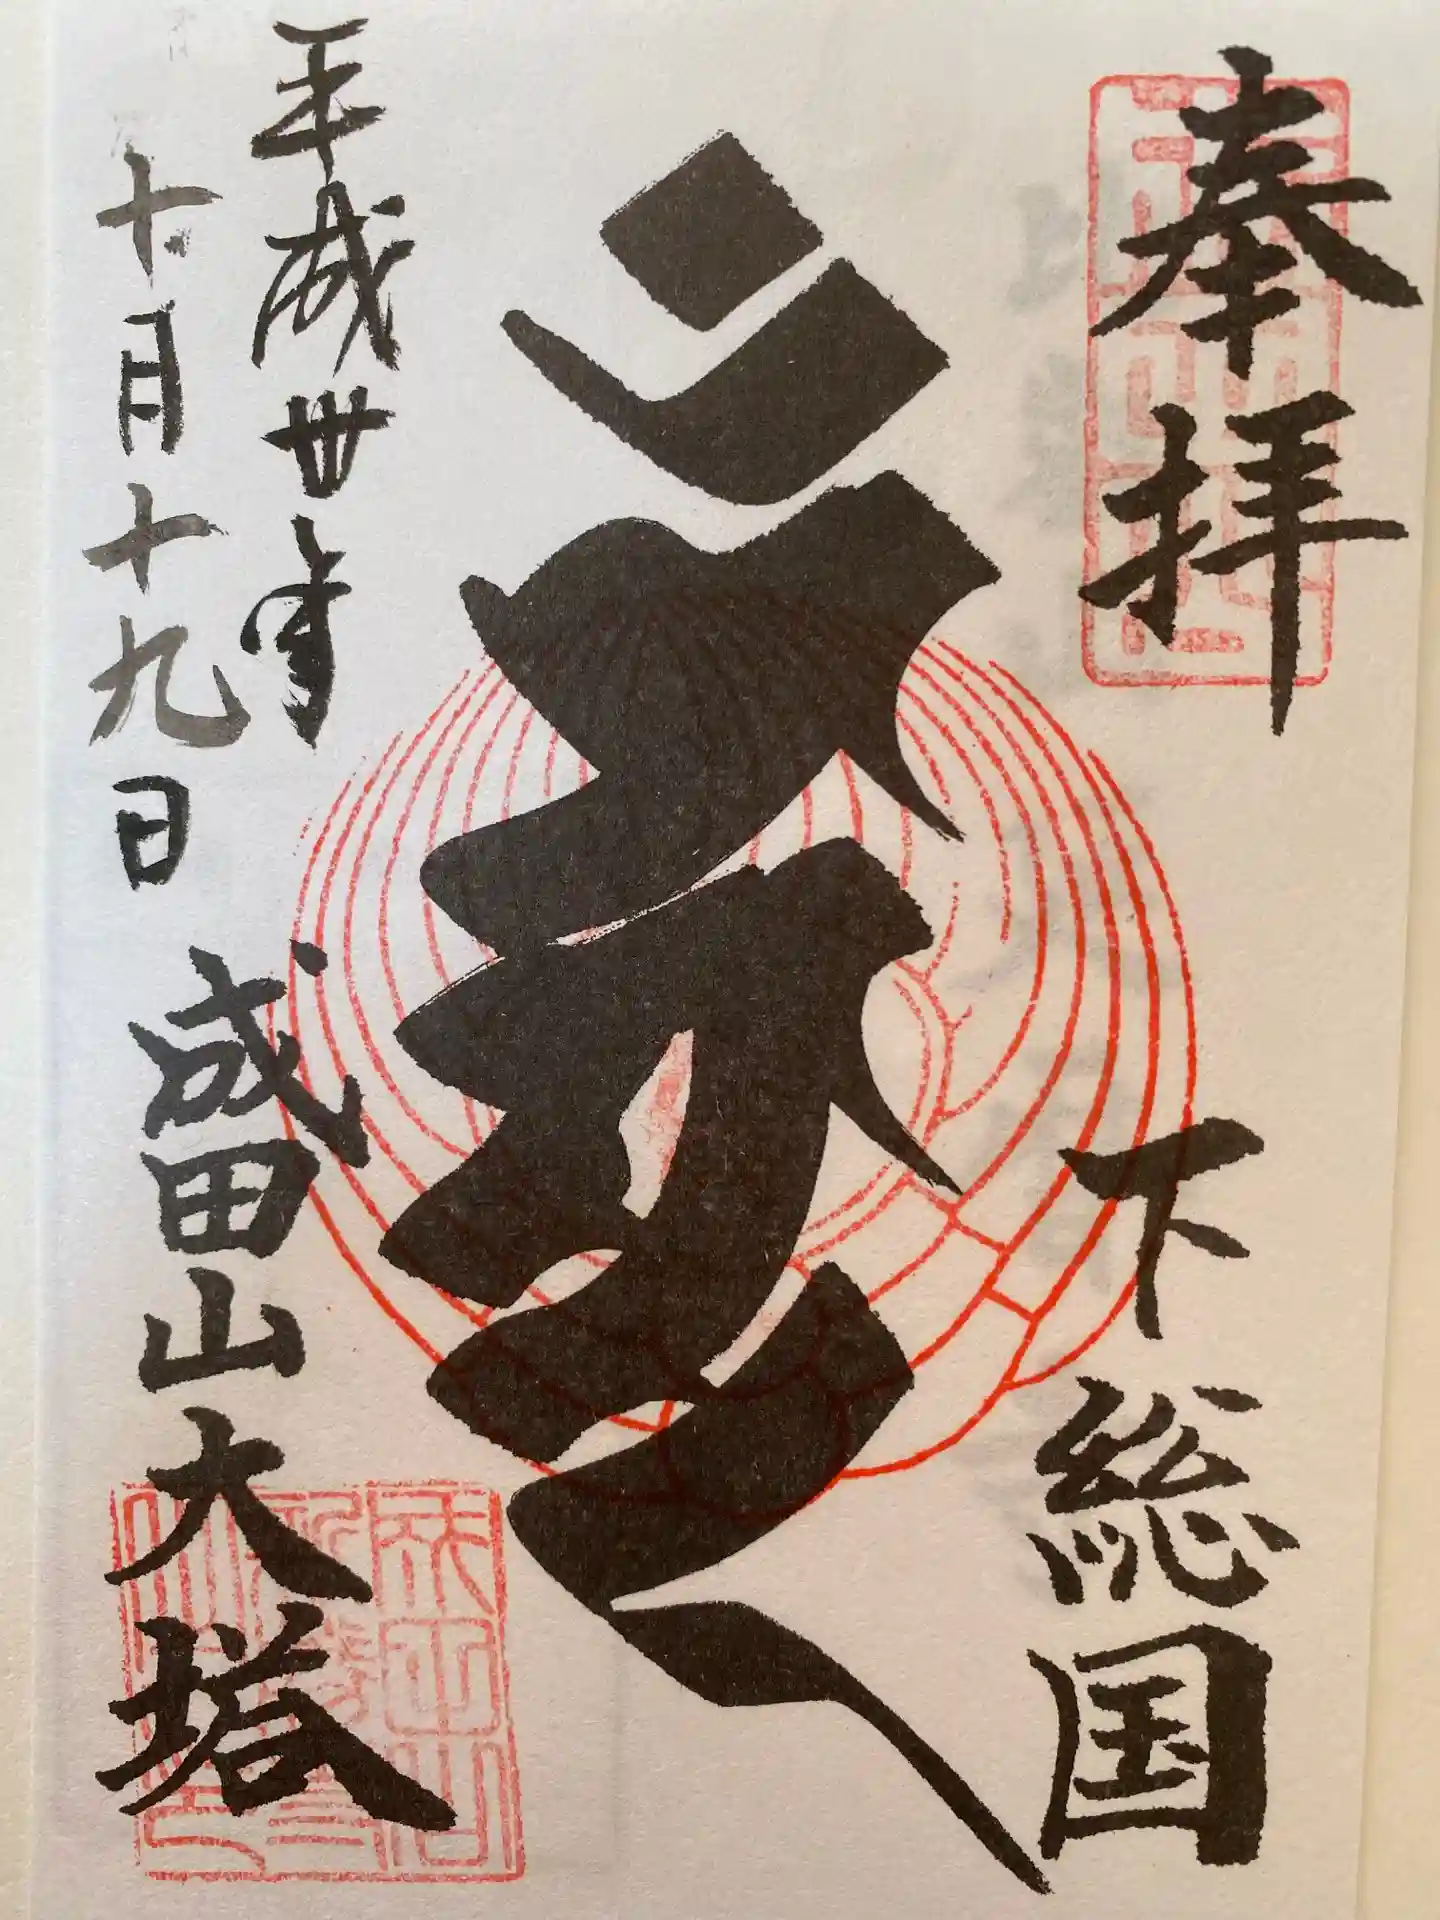 奉拝
下総国
平成卅年
十月十九日
成田山大塔